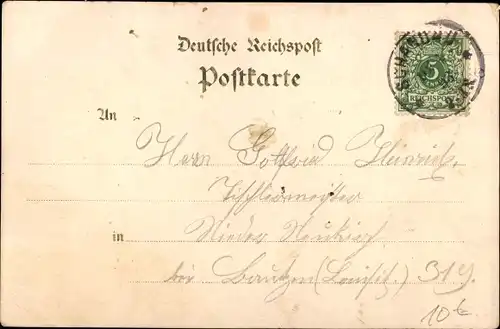 Deutsche Reichspost
Postkarte
SCHANDAU
5
REICHSPOST
An
Herrn Gottfried Heinrich
Tischlermeister
in
Nieder Neukirch
bei Bautzen (Lausit.) 319.
10 €